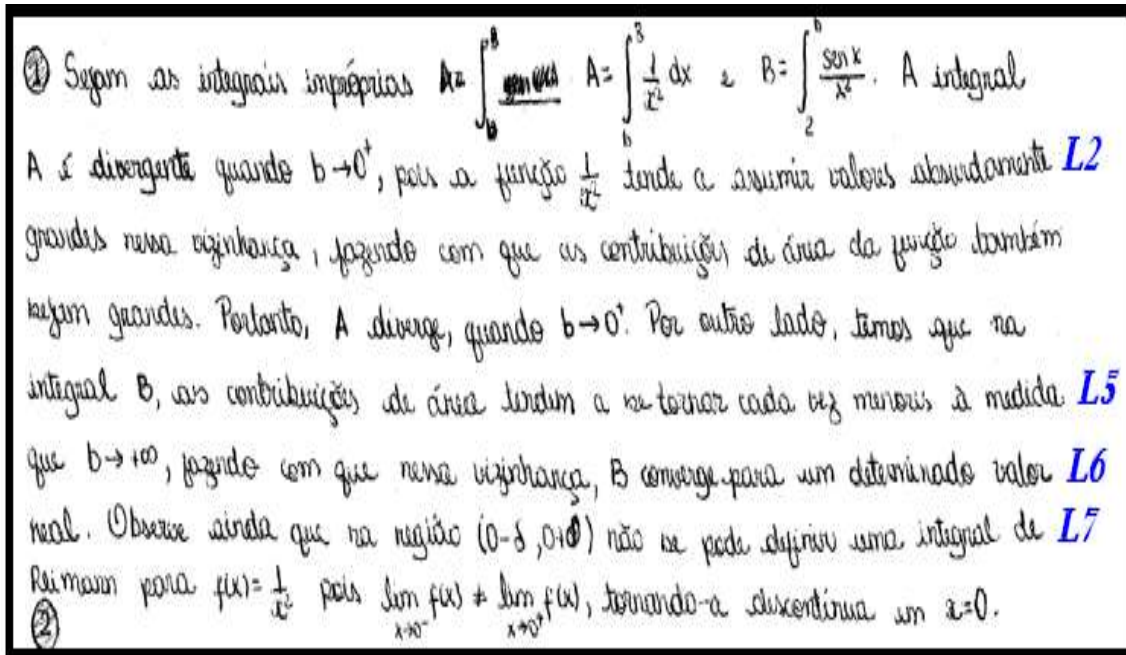 ① Sejam as integrais impróprias A = ∫_b^3 1/x² dx e B = ∫_2^b sen x/x². A integral
A é divergente quando b→0⁺, pois a função 1/x² tende a assumir valores absurdamente L2
grandes nessa vizinhança, fazendo com que as contribuições de área da função também
sejam grandes. Portanto, A diverge, quando b→0⁺. Por outro lado, temos que na
integral B, as contribuições de área tendem a se tornar cada vez menores à medida L5
que b→+∞, fazendo com que nessa vizinhança, B converge para um determinado valor L6
real. Observe ainda que na região (0-δ, 0+δ) não se pode definir uma integral de L7
Reimann para f(x)= 1/x² pois lim_{x→0⁻} f(x) ≠ lim_{x→0⁺} f(x), tornando-a descontínua em x=0.
②